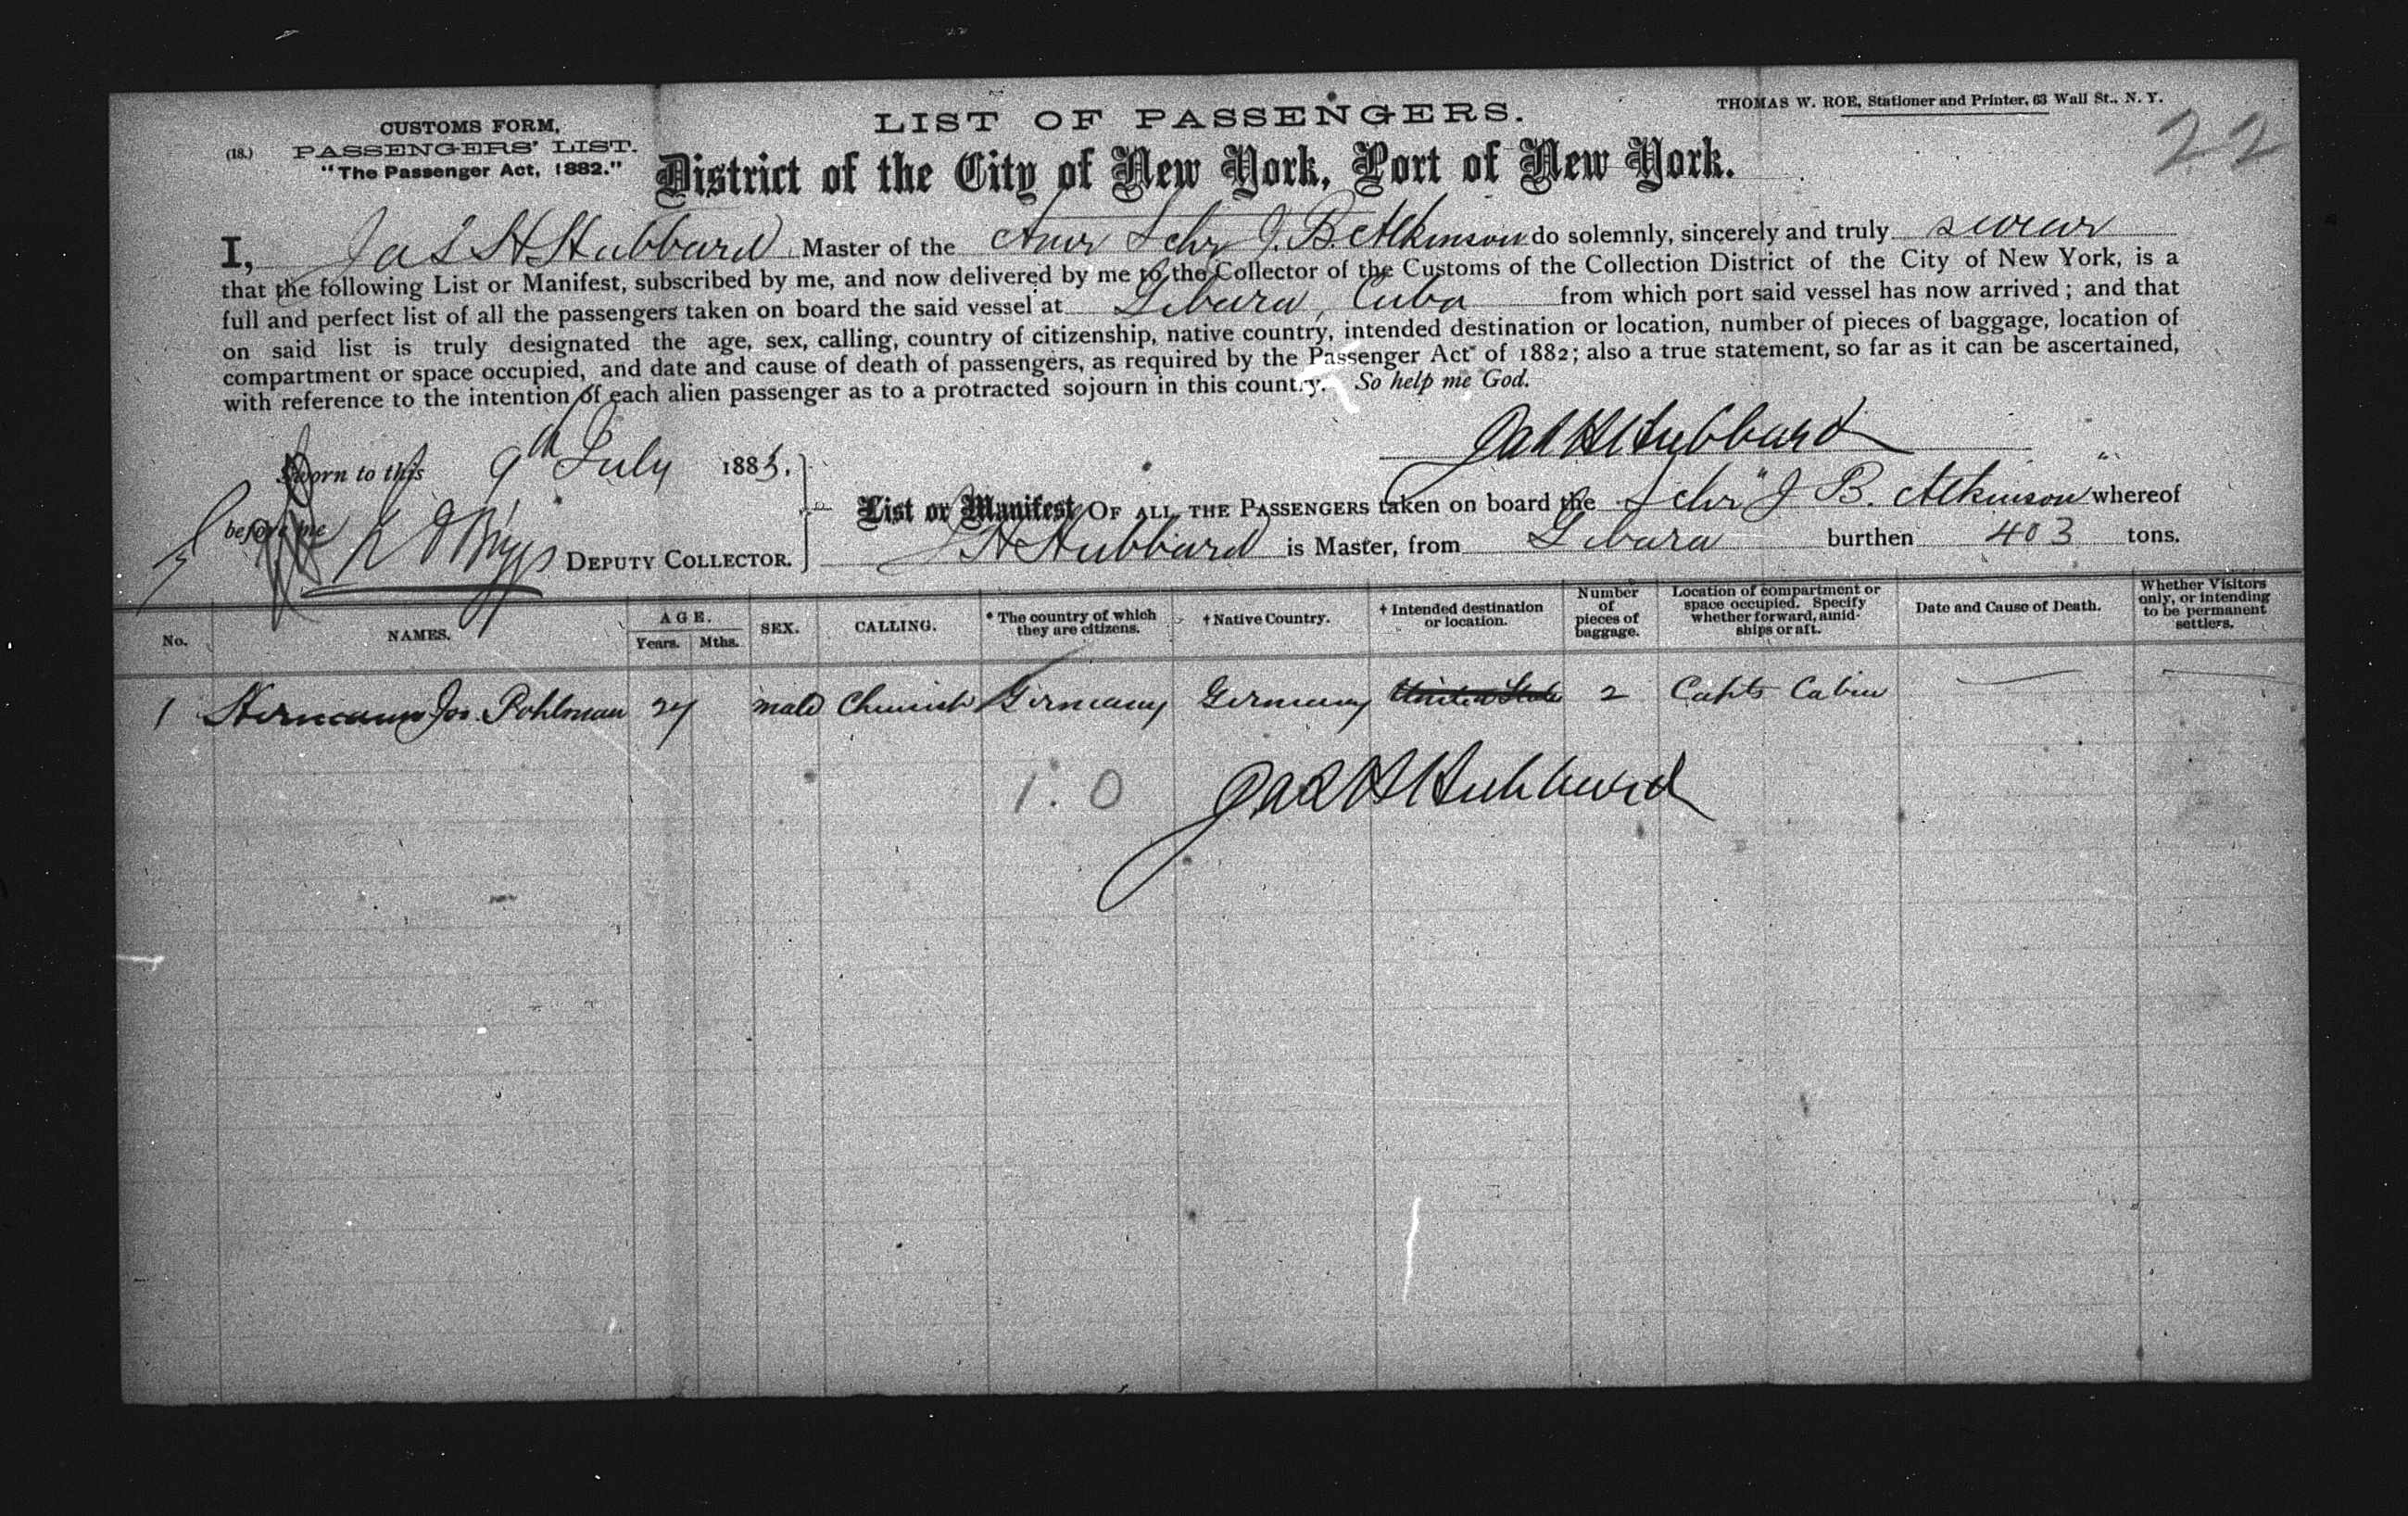 CUSTOMS FORM,
(18.) PASSENGERS' LIST.
"The Passenger Act, 1882."
LIST OF PASSENGERS.
THOMAS W. ROE, Stationer and Printer, 63 Wall St., N. Y.
22
District of the City of New York, Port of New York.
I, Jas H Hubbard Master of the Amr Schr J. B. Atkinson do solemnly, sincerely and truly swear
that the following List or Manifest, subscribed by me, and now delivered by me to the Collector of the Customs of the Collection District of the City of New York, is a
full and perfect list of all the passengers taken on board the said vessel at Gibara, Cuba from which port said vessel has now arrived; and that
on said list is truly designated the age, sex, calling, country of citizenship, native country, intended destination or location, number of pieces of baggage, location of
compartment or space occupied, and date and cause of death of passengers, as required by the Passenger Act of 1882; also a true statement, so far as it can be ascertained,
with reference to the intention of each alien passenger as to a protracted sojourn in this country. So help me God.
Jas H Hubbard
Sworn to this 9th July 1883.
before me
DEPUTY COLLECTOR.
List or Manifest OF ALL THE PASSENGERS taken on board the Schr "J B. Atkinson" whereof
J H Hubbard is Master, from Gibara burthen 403 tons.
No. NAMES. AGE. Years. Mths. SEX. CALLING. * The country of which they are citizens. † Native Country. † Intended destination or location. Number of pieces of baggage. Location of compartment or space occupied. Specify whether forward, amidships or aft. Date and Cause of Death. Whether Visitors only, or intending to be permanent settlers.
1 Hermann Jos. Pohlman 24 male Chemist Germany Germany United States 2 Capts Cabin
1. 0
Jas H Hubbard